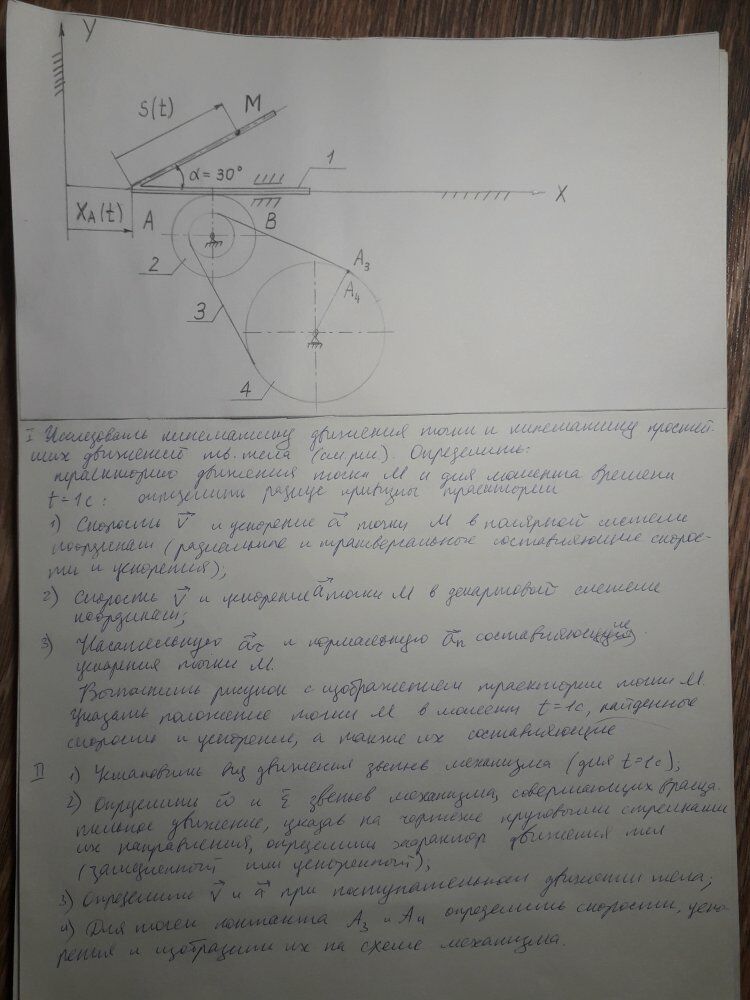 Y
S(t)
M
α = 30°
1
X
X_A(t)
A
B
2
A₃
A₄
3
4
I Исследовать кинематику движения точки и кинематику простей-
ших движений тв. тела (см рис). Определить:
траекторию движения точки М и для момента времени
t = 1с: определить радиус кривизны траектории
1) Скорость v⃗ и ускорение a⃗ точки М в полярной системе
координат (радиальные и трансверсальные составляющие скорос-
ти и ускорения);
2) Скорость v⃗ и ускорение a⃗ точки М в декартовой системе
координат;
3) Касательную a⃗τ и нормальную a⃗n составляющие
ускорения точки М.
Выполнить рисунок с изображением траектории точки М.
Указать положение точки М в момент t = 1с, найденные
скорость и ускорение, а также их составляющие
II 1) Установить вид движения звеньев механизма (для t = 1с);
2) Определить ω̄ и ε̄ звеньев механизма, совершающих враща-
тельное движение, указав на чертеже круговыми стрелками
их направления, определить характер движения тел
(замедленный или ускоренный);
3) Определить v⃗ и a⃗ при поступательном движении тела;
4) Для точек контакта A₃ и A₄ определить скорости, уско-
рения и изобразить их на схеме механизма.